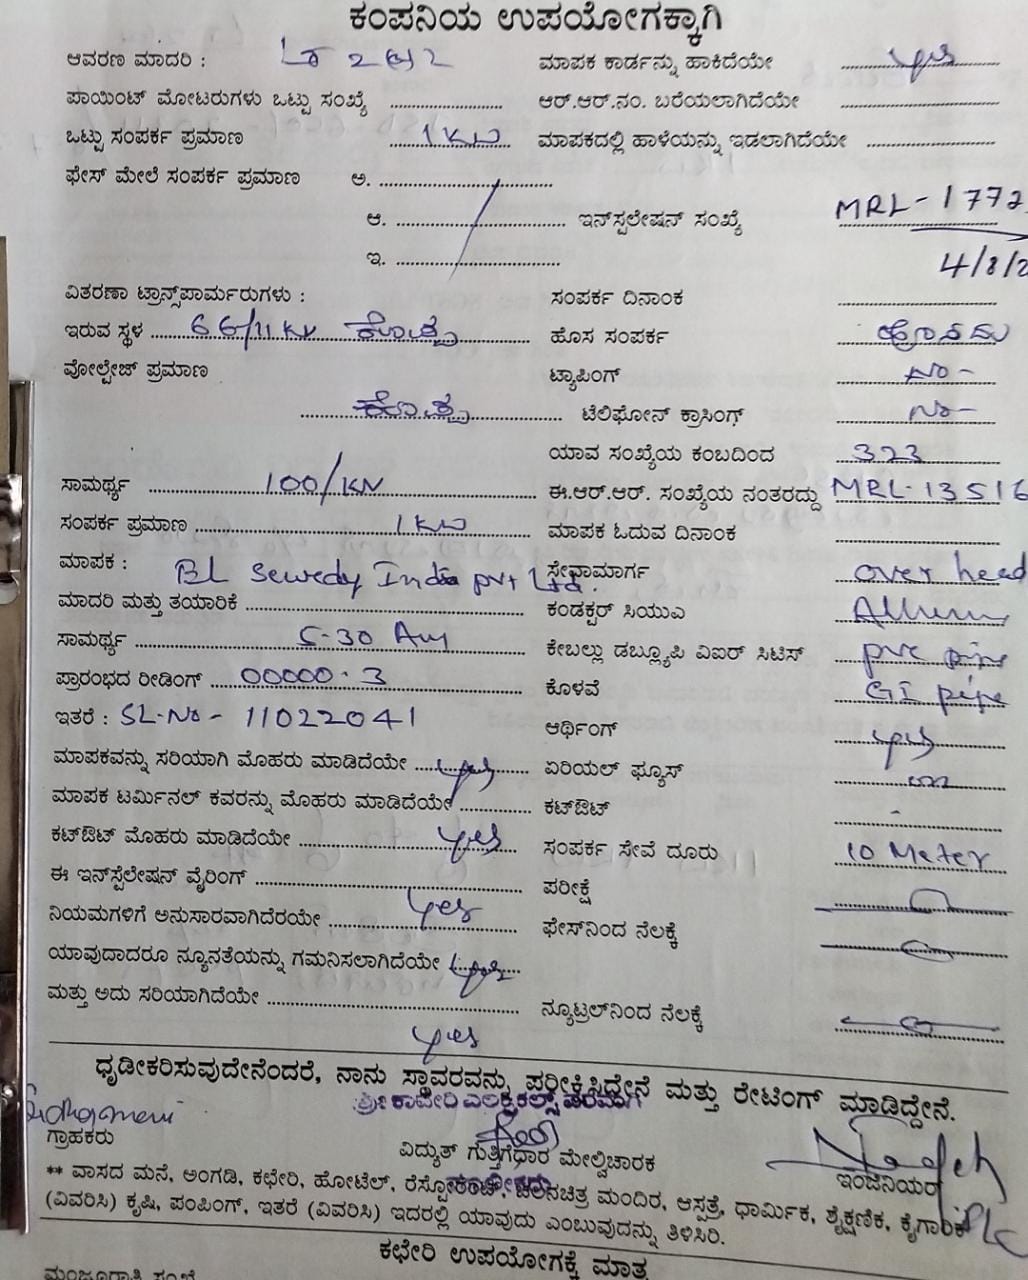 ಕಂಪನಿಯ ಉಪಯೋಗಕ್ಕಾಗಿ
ಆವರಣ ಮಾದರಿ : ಮಾಪಕ ಕಾರ್ಡನ್ನು ಹಾಕಿದೆಯೇ yes
ಪಾಯಿಂಟ್ ಮೋಟರುಗಳು ಒಟ್ಟು ಸಂಖ್ಯೆ ಆರ್.ಆರ್.ನಂ. ಬರೆಯಲಾಗಿದೆಯೇ
ಒಟ್ಟು ಸಂಪರ್ಕ ಪ್ರಮಾಣ 1KW ಮಾಪಕದಲ್ಲಿ ಹಾಳೆಯನ್ನು ಇಡಲಾಗಿದೆಯೇ
ಫೇಸ್ ಮೇಲೆ ಸಂಪರ್ಕ ಪ್ರಮಾಣ ಅ.
ಆ. ಇನ್‌ಸ್ಟಲೇಷನ್ ಸಂಖ್ಯೆ MRL-1772
ಇ. 4/8/2
ವಿತರಣಾ ಟ್ರಾನ್ಸ್‌ಪಾರ್ಮರುಗಳು : ಸಂಪರ್ಕ ದಿನಾಂಕ
ಇರುವ ಸ್ಥಳ 66/11 KV ಕೊಪ್ಪ ಹೊಸ ಸಂಪರ್ಕ ಹೊಸದು
ವೋಲ್ಟೇಜ್ ಪ್ರಮಾಣ ಟ್ಯಾಪಿಂಗ್ No-
ಕೊಪ್ಪ ಟೆಲಿಫೋನ್ ಕ್ರಾಸಿಂಗ್ No-
ಯಾವ ಸಂಖ್ಯೆಯ ಕಂಬದಿಂದ 323
ಸಾಮರ್ಥ್ಯ 100/KV ಈ.ಆರ್.ಆರ್. ಸಂಖ್ಯೆಯ ನಂತರದ್ದು MRL-13516
ಸಂಪರ್ಕ ಪ್ರಮಾಣ 1KW ಮಾಪಕ ಓದುವ ದಿನಾಂಕ
ಮಾಪಕ : Sewedy India pvt Ltd. ಸೇವಾಮಾರ್ಗ over head
ಮಾದರಿ ಮತ್ತು ತಯಾರಿಕೆ ಕಂಡಕ್ಟರ್ ಸಿಯುಎ
ಸಾಮರ್ಥ್ಯ 5-30 Am ಕೇಬಲ್ಲು ಡಬ್ಲ್ಯೂಪಿ ವಿಐಆರ್ ಸಿಟಿಸ್ pvc pipe
ಪ್ರಾರಂಭದ ರೀಡಿಂಗ್ 00000.3 ಕೊಳವೆ GI pipe
ಇತರೆ : SL-No- 11022041 ಆರ್ಥಿಂಗ್ yes
ಮಾಪಕವನ್ನು ಸರಿಯಾಗಿ ಮೊಹರು ಮಾಡಿದೆಯೇ yes ಏರಿಯಲ್ ಫ್ಯೂಸ್
ಮಾಪಕ ಟರ್ಮಿನಲ್ ಕವರನ್ನು ಮೊಹರು ಮಾಡಿದೆಯೇ ಕಟ್‌ಔಟ್ -
ಕಟ್‌ಔಟ್ ಮೊಹರು ಮಾಡಿದೆಯೇ yes ಸಂಪರ್ಕ ಸೇವೆ ದೂರು 10 Meter
ಈ ಇನ್‌ಸ್ಟಲೇಷನ್ ವೈರಿಂಗ್ ಪರೀಕ್ಷೆ
ನಿಯಮಗಳಿಗೆ ಅನುಸಾರವಾಗಿದೆರಯೇ yes ಫೇಸ್‌ನಿಂದ ನೆಲಕ್ಕೆ
ಯಾವುದಾದರೂ ನ್ಯೂನತೆಯನ್ನು ಗಮನಿಸಲಾಗಿದೆಯೇ yes
ಮತ್ತು ಅದು ಸರಿಯಾಗಿದೆಯೇ ನ್ಯೂಟ್ರಲ್‌ನಿಂದ ನೆಲಕ್ಕೆ
yes
ಧೃಡೀಕರಿಸುವುದೇನೆಂದರೆ, ನಾನು ಸ್ಥಾವರವನ್ನು ಪರೀಕ್ಷಿಸಿದ್ದೇನೆ ಮತ್ತು ರೇಟಿಂಗ್ ಮಾಡಿದ್ದೇನೆ.
ಶ್ರೀ ಕಾವೇರಿ ಎಲೆಕ್ಟ್ರಿಕಲ್ಸ್
ಗ್ರಾಹಕರು ವಿದ್ಯುತ್ ಗುತ್ತಿಗೆಧಾರ ಮೇಲ್ವಿಚಾರಕ ಇಂಜಿನಿಯರ್
** ವಾಸದ ಮನೆ, ಅಂಗಡಿ, ಕಛೇರಿ, ಹೋಟೆಲ್, ರೆಸ್ಟೋರೆಂಟ್, ಚಲನಚಿತ್ರ ಮಂದಿರ, ಆಸ್ಪತ್ರೆ, ಧಾರ್ಮಿಕ, ಶೈಕ್ಷಣಿಕ, ಕೈಗಾರಿಕೆ
(ವಿವರಿಸಿ) ಕೃಷಿ, ಪಂಪಿಂಗ್, ಇತರೆ (ವಿವರಿಸಿ) ಇದರಲ್ಲಿ ಯಾವುದು ಎಂಬುವುದನ್ನು ತಿಳಿಸಿರಿ.
ಕಛೇರಿ ಉಪಯೋಗಕ್ಕೆ ಮಾತ್ರ
ಮಂಜೂರಾತಿ ಸಂಖ್ಯೆ